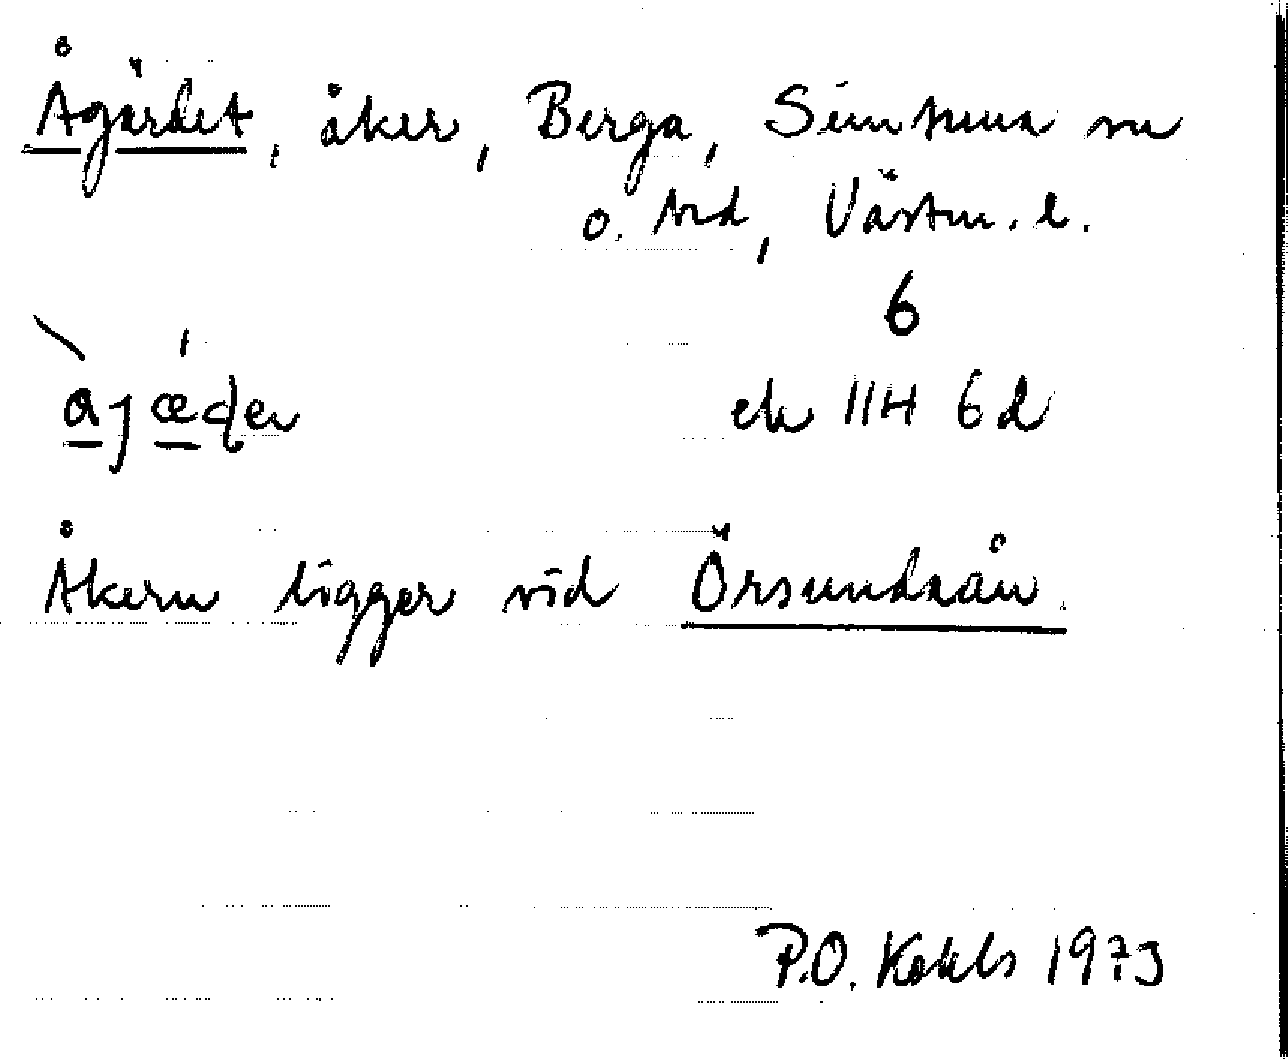 Ågärdet, åker, Berga, Simtuna sn
o. hd, Västm. l.
6
ek 11H 6d
Åkern ligger vid Örsundaån.
P.O. Kohls 1973